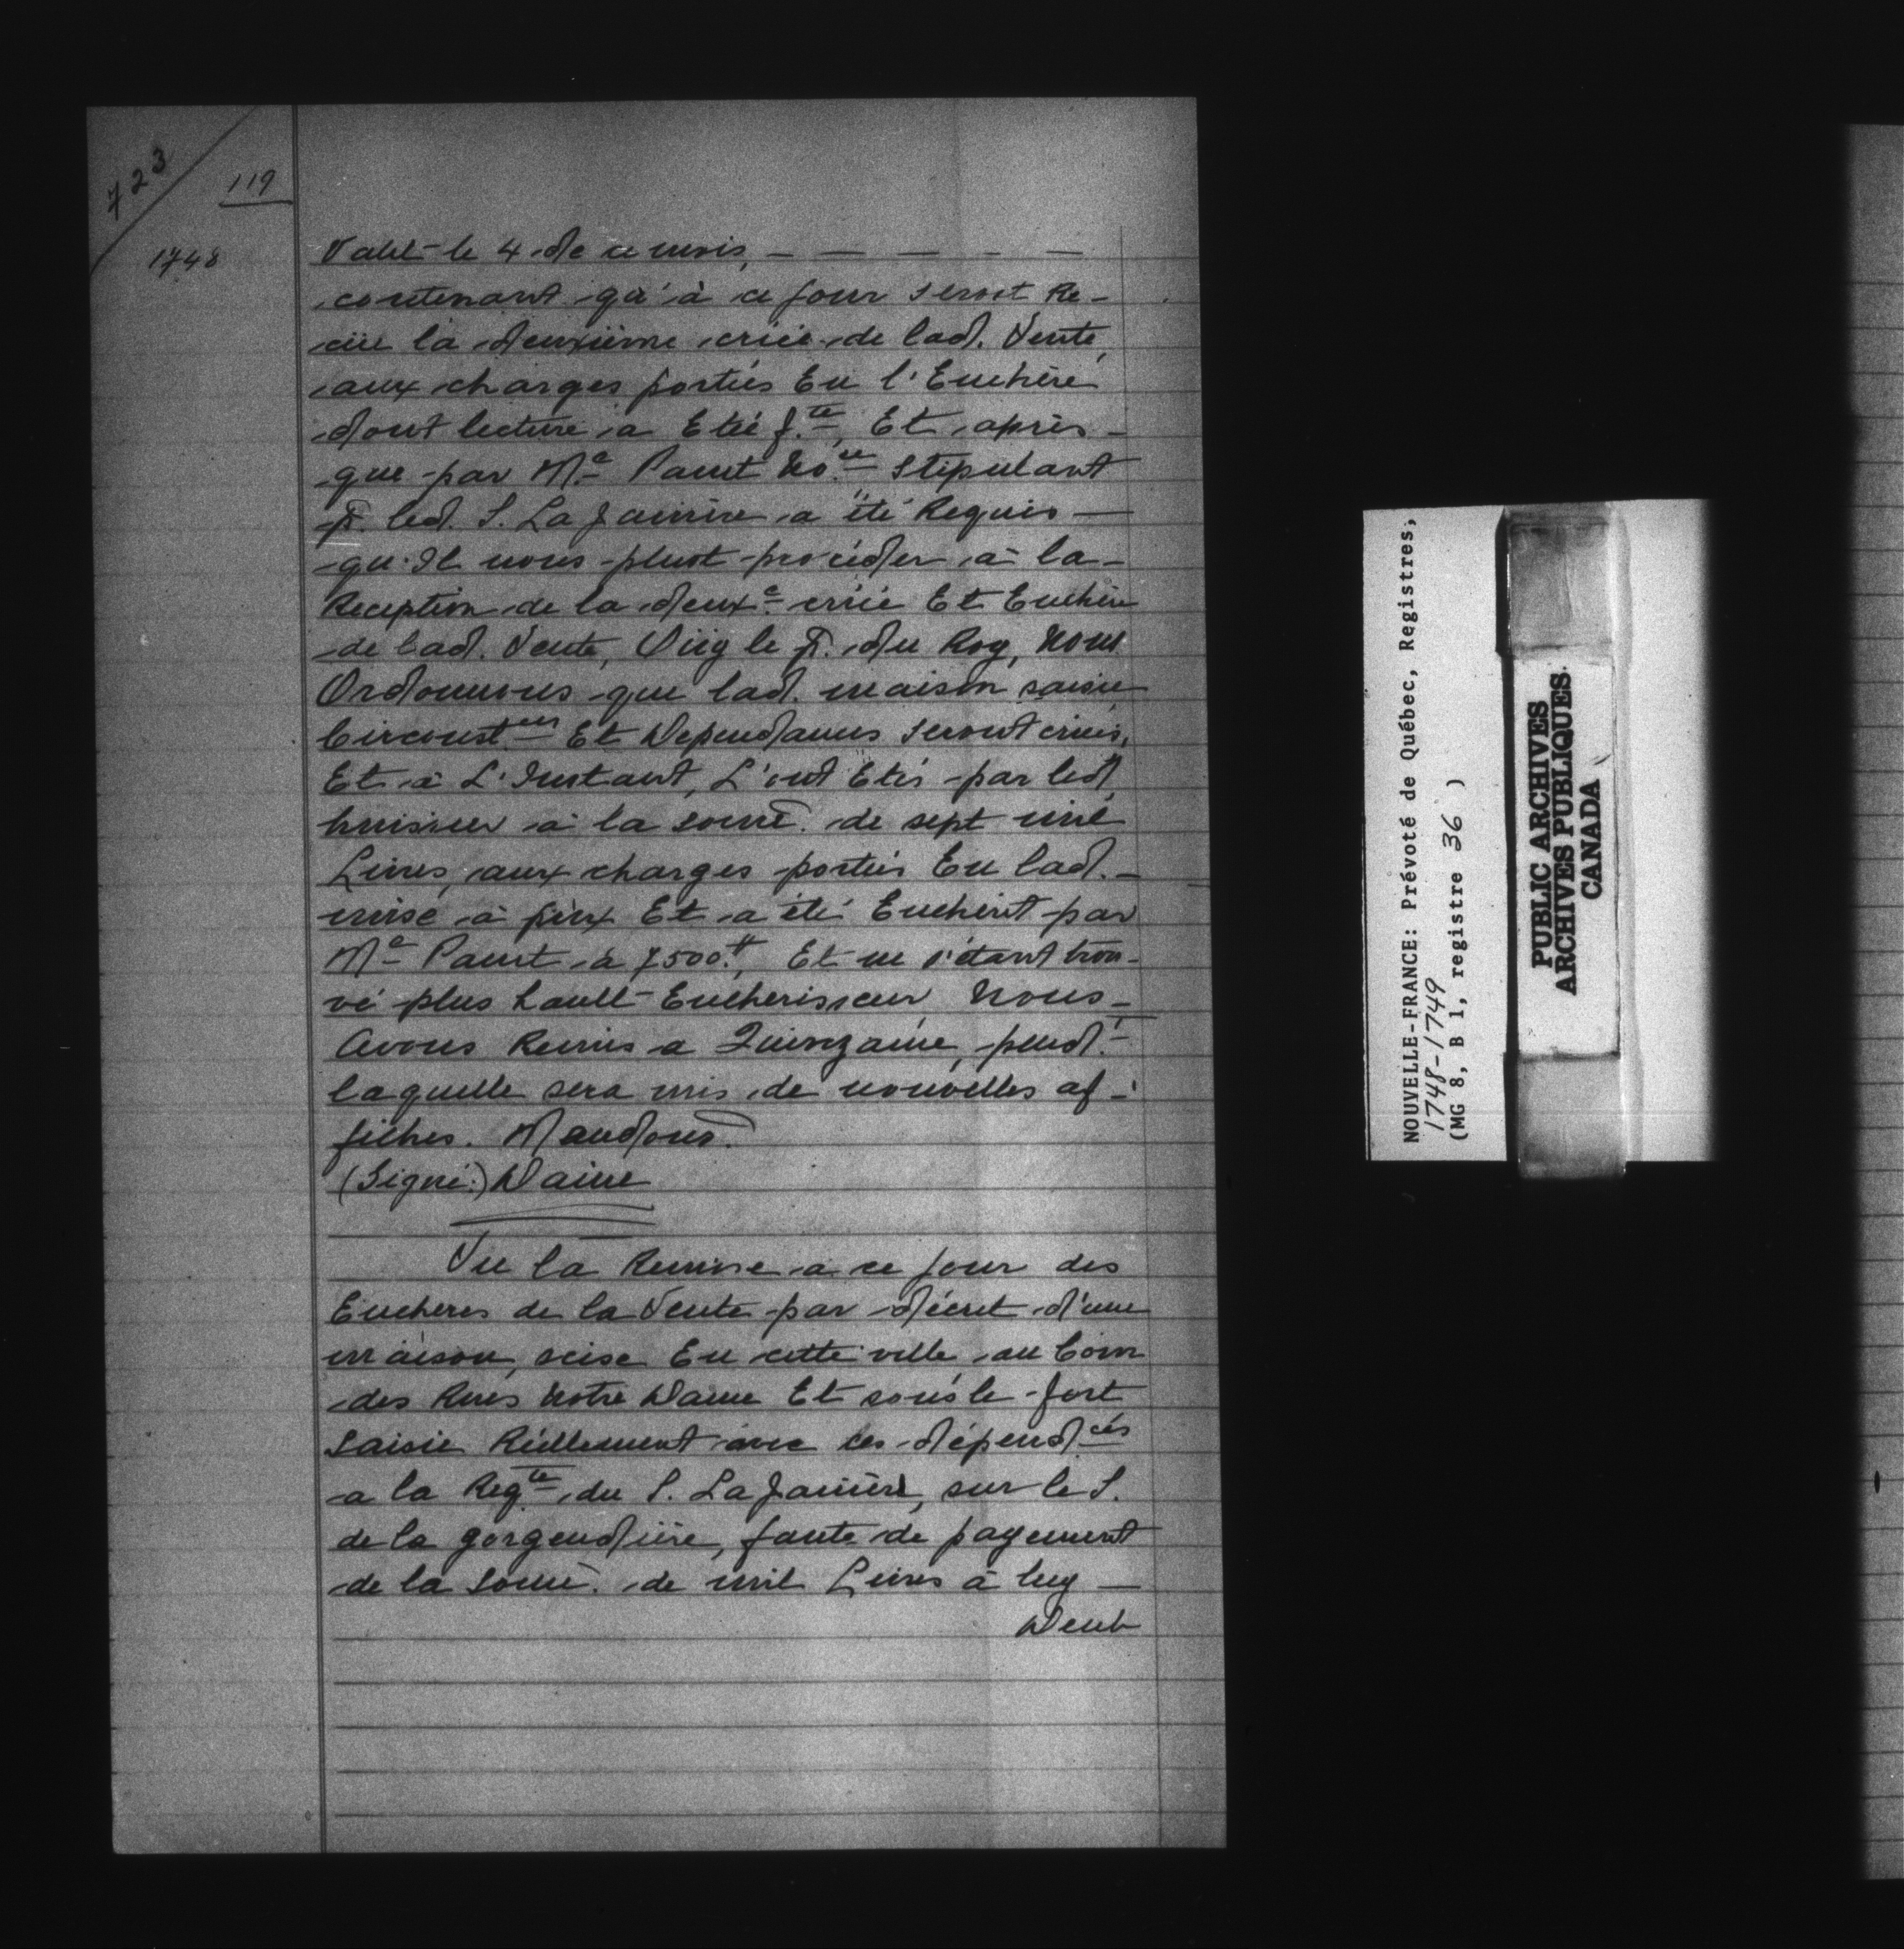 723
119
1748
Valet le 4 de ce mois, — — — — —
contenant qu'à ce jour seroit Re-
cüe la deuxième criée de lad. Vente,
aux charges portées En l'Enchère
dont lecture a Eté f.te, Et après-
que par Me Panet No.re stipulant
p. led. S. La Janière a été Requis —
qu'Il nous plust procéder à la-
Reception de la deuxe criée Et Enchère
de lad. Vente, Oüy le p. du Roy, Nous
Ordonnons que lad. maison saisie
Circonst.ces Et Dependances seront criées,
Et à L'Instant, L'ont Etés par led.
huissier à la some. de sept mil
Livres, aux charges portées En lad.-
mise à prix Et a été Encherit par
Me Panet à 7500.tt, Et ne s'étant trou-
vé plus hault Encherisseur, Nous-
Avons Remis a Quinzaine, pend.t
laquelle sera mis de nouvelles af-
fiches. Mandons.
(Signé:) Daine
Vu la Remise a ce jour des
Encheres de la Vente par décret d'une
maison scise En cette ville au Coin
des Rües Notre Dame Et sous le fort
Saisie Réellement avec ses dépendces
a la Reqte du S. La Janière, sur le S.
de la gorgendière, faute de payement
de la some. de mil Livres à luy —
Deub
NOUVELLE-FRANCE: Prévoté de Québec, Registres,
1748-1749
(MG 8, B 1, registre 36 )
PUBLIC ARCHIVES
ARCHIVES PUBLIQUES
CANADA